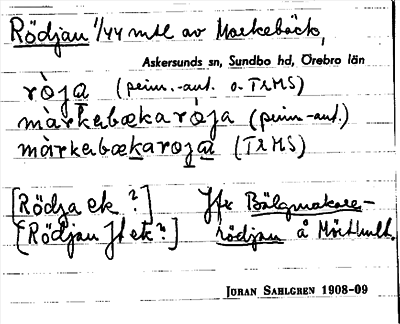 Rödjan 1/44 mtl av Markebäck,
Askersunds sn, Sundbo hd, Örebro län
ròja (peim.-aut. o. TRMS)
màrkabækaròja (peim-aut.)
màrkabækarojai (TRMS)
[Rödja ek ?] Jfr Bälgmakare-
[Rödjan Jf ek ?] rödjan å Mörthult.
JÖRAN SAHLGREN 1908-09